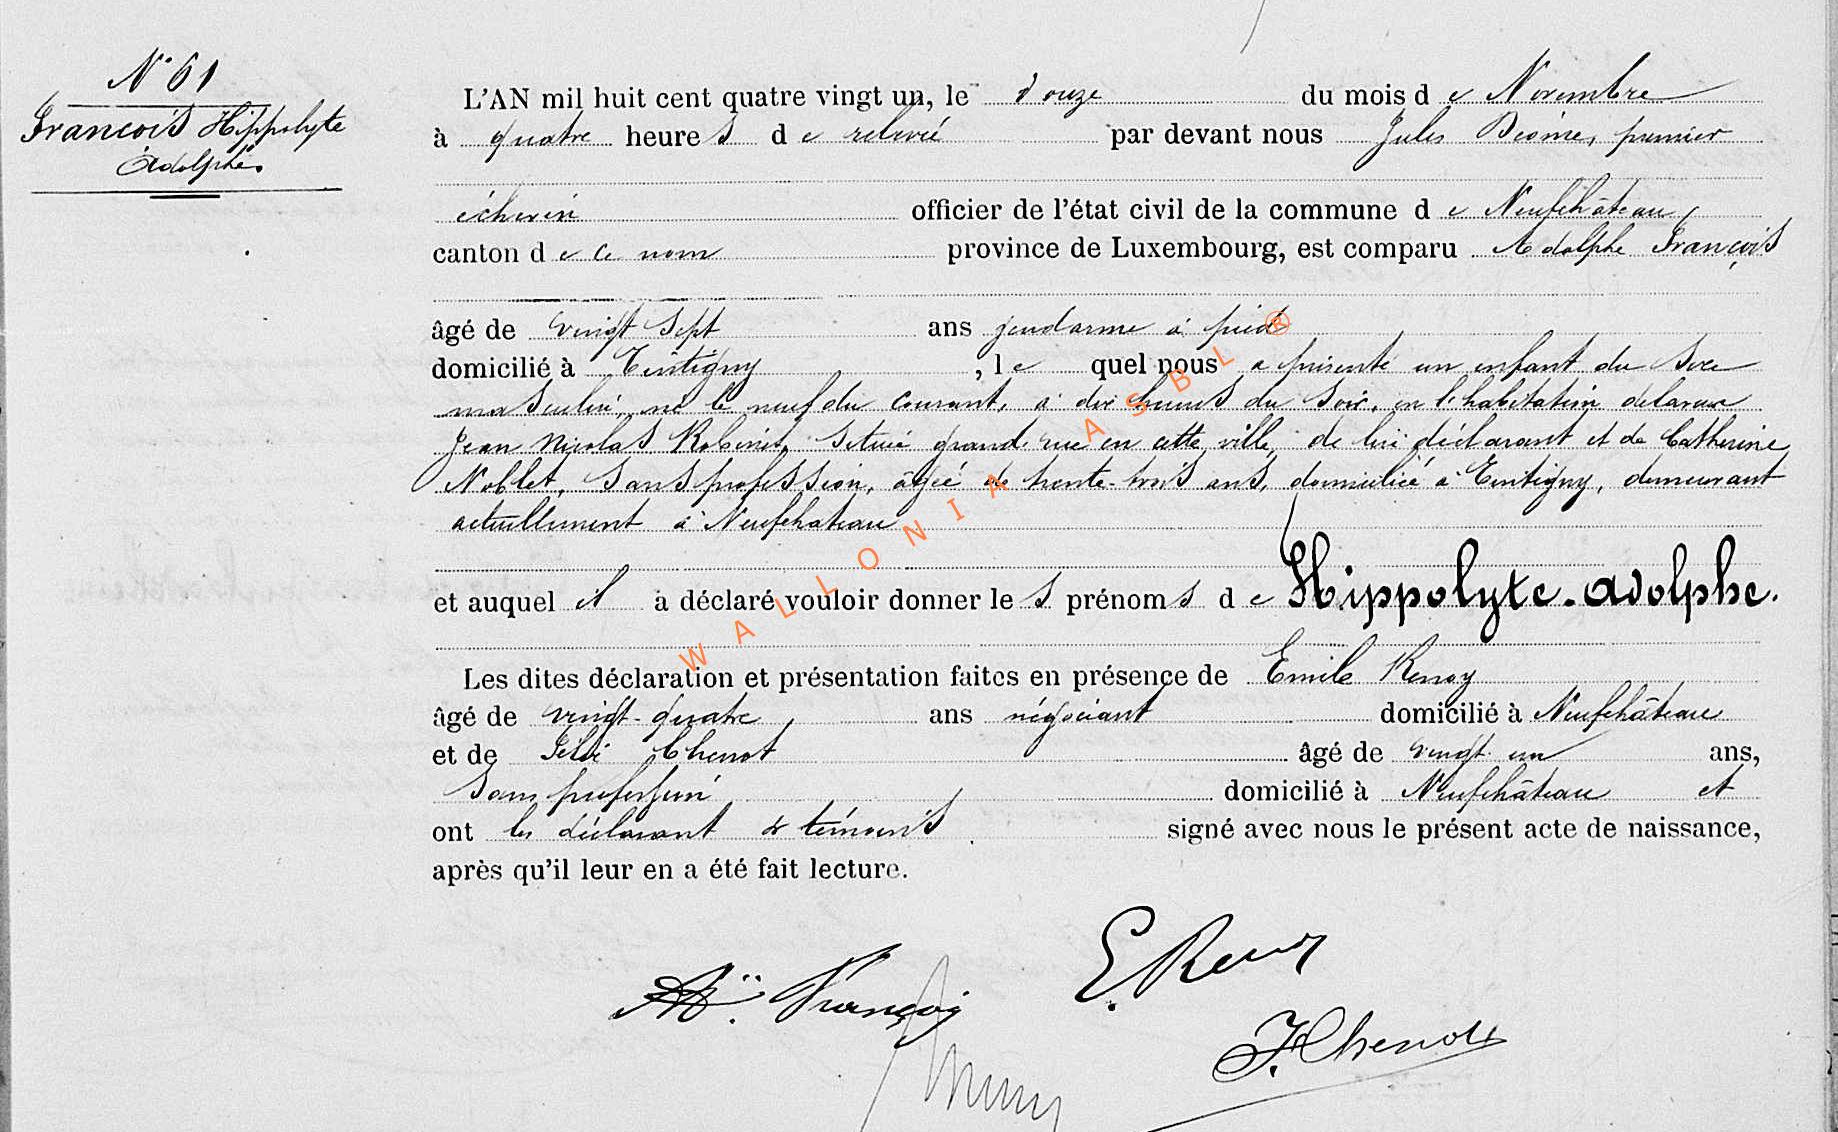 N° 61
François Hippolyte
Adolphe.
L'AN mil huit cent quatre vingt un, le douze du mois de Novembre
à quatre heures de relevée par devant nous Jules premier
échevin officier de l'état civil de la commune de Neufchâteau,
canton de ce nom province de Luxembourg, est comparu Adolphe François
âgé de vingt sept ans gendarme à pied
domicilié à Tintigny, le quel nous a présenté un enfant du sexe
masculin, né le neuf du courant, à dix heures du soir, en l'habitation de la veuve
Jean Nicolas Robinet, située grand'rue en cette ville, de lui déclarant et de Catherine
Noblet, sans profession, âgée de trente-trois ans, domiciliée à Tintigny, demeurant
actuellement à Neufchateau
et auquel il a déclaré vouloir donner les prénoms de Hippolyte-Adolphe.
Les dites déclaration et présentation faites en présence de Emile Renoy
âgé de vingt-quatre, ans négociant domicilié à Neufchâteau
et de Félix Chenot âgé de vingt un ans,
sans profession domicilié à Neufchâteau et
ont les déclarant & témoins signé avec nous le présent acte de naissance,
après qu'il leur en a été fait lecture.
E. Renoy
Ad. François
F. Chenot
WALLONIA ASBL ®